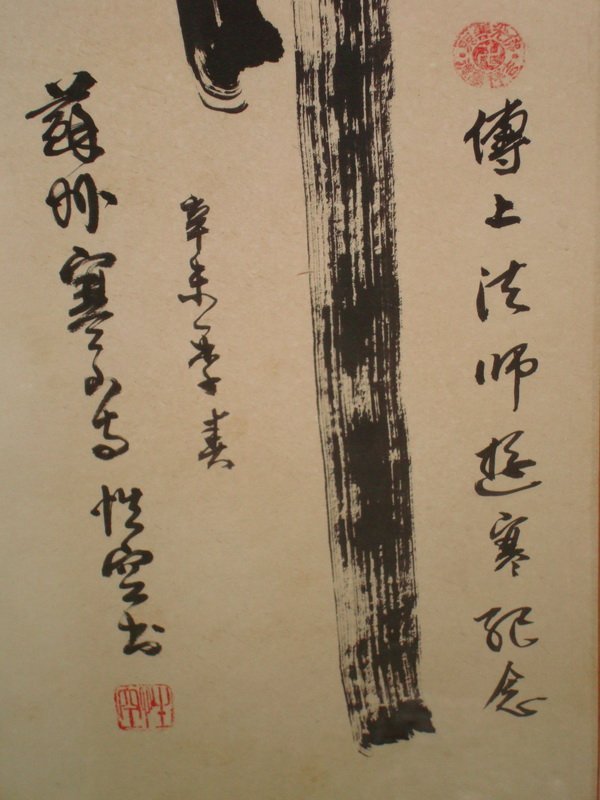 傳上法師遊寒紀念
辛未季春
蘇州寒山寺性空书
性空